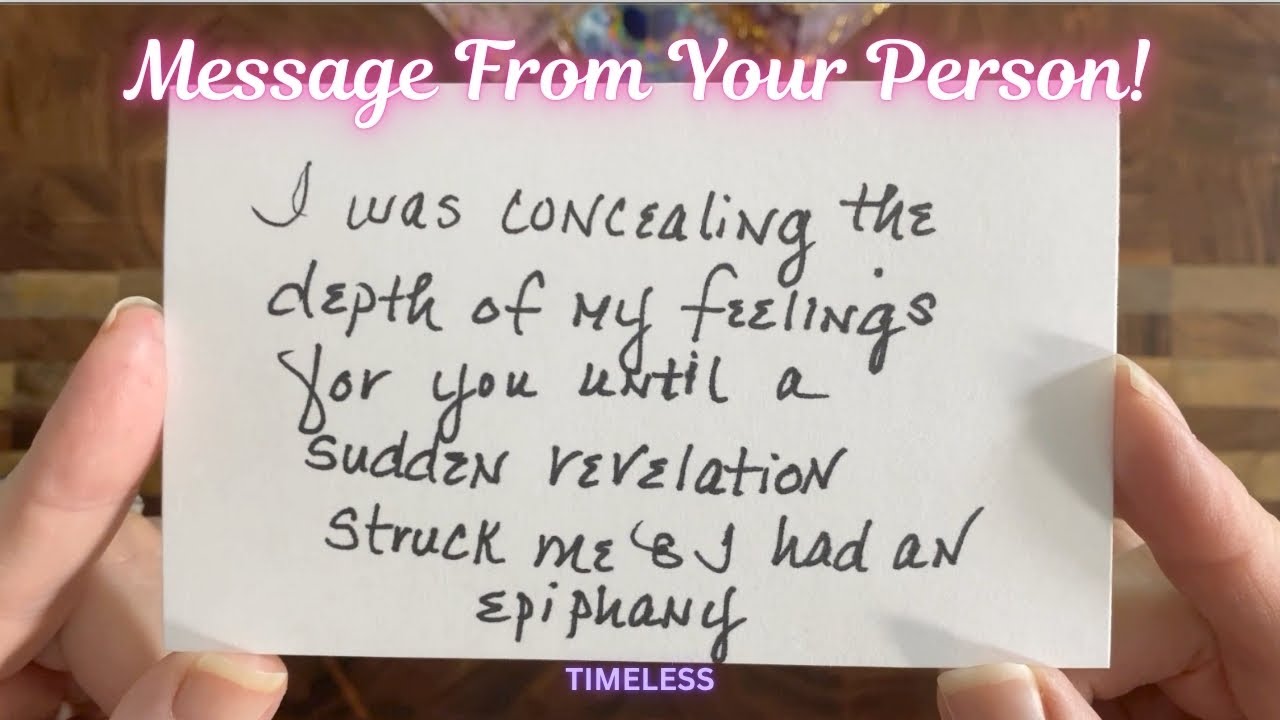 Message From Your Person!
I was concealing the
depth of my feelings
for you until a
sudden revelation
struck me & I had an
epiphany
TIMELESS